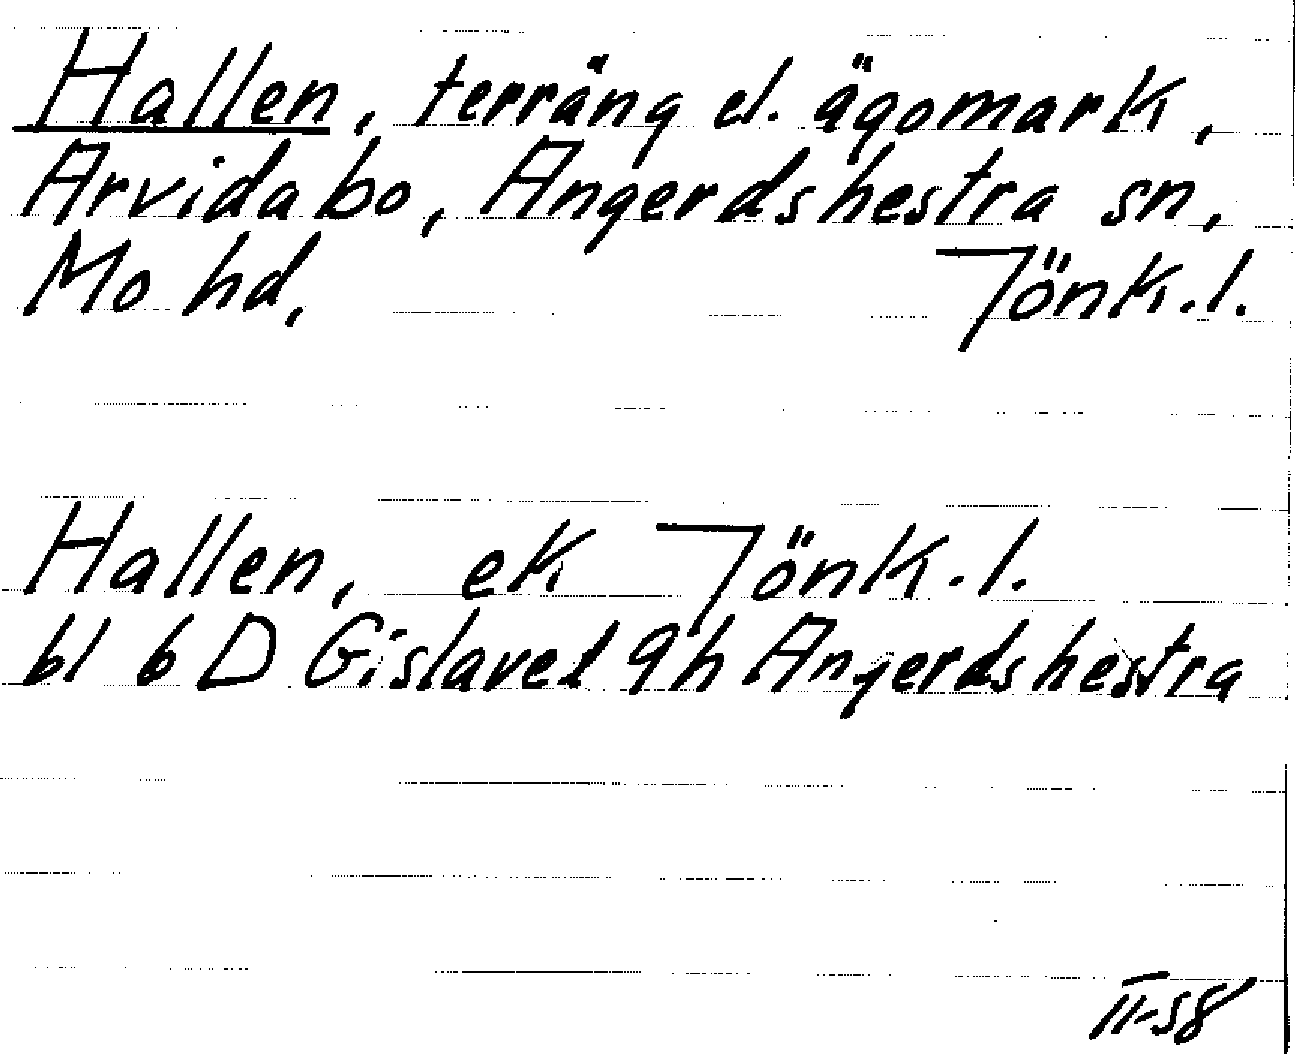 Hallen, terräng el. ägomark,
Arvidabo, Angerdshestra sn,
Mo hd, Jönk.l.
Hallen, ek Jönk.l.
bl 6 D Gislaved 9h Angerdshestra
II-58